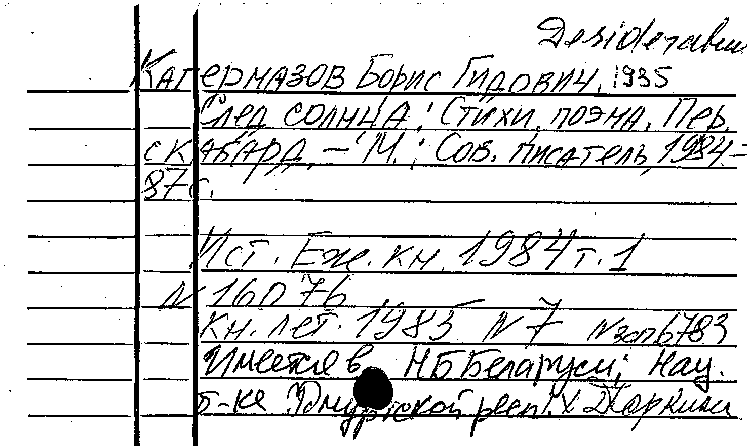 Desiderata
Кагермазов Борис Гидович, 1935
След солнца: Стихи, поэма. Пер.
с кабард. - М.: Сов. писатель, 1984.-
87с.
Ист. Еж. кн. 1984 т. 1
N 16076
Кн. лет. 1985 N 7 N зап 6783
Имеется в НБ Беларуси; Нау.
б-ке Удмуртской респ.